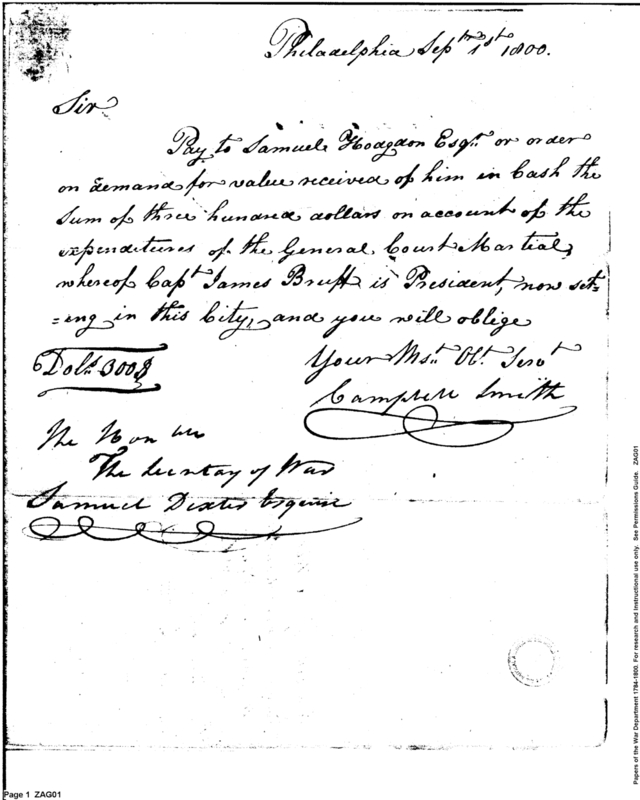 Philadelphia Septr 1st 1800.
Sir
Pay to Samuel Hodgdon Esqr. or order
on demand for value received of him in Cash the
Sum of three hundred dollars on account of the
expenditures of the General Court Martial,
whereof Capt James Bruff is President, now set=
=eng in this City, and you will oblige
Dolls. 300 $
Your Mst. Obt. Servt
Campbell Smith
The Honble
The Secretay of War
Samuel Dexter Esquire
Papers of the War Department 1784-1800. For research and instructional use only. See Permissions Guide. ZAG01
Page 1 ZAG01